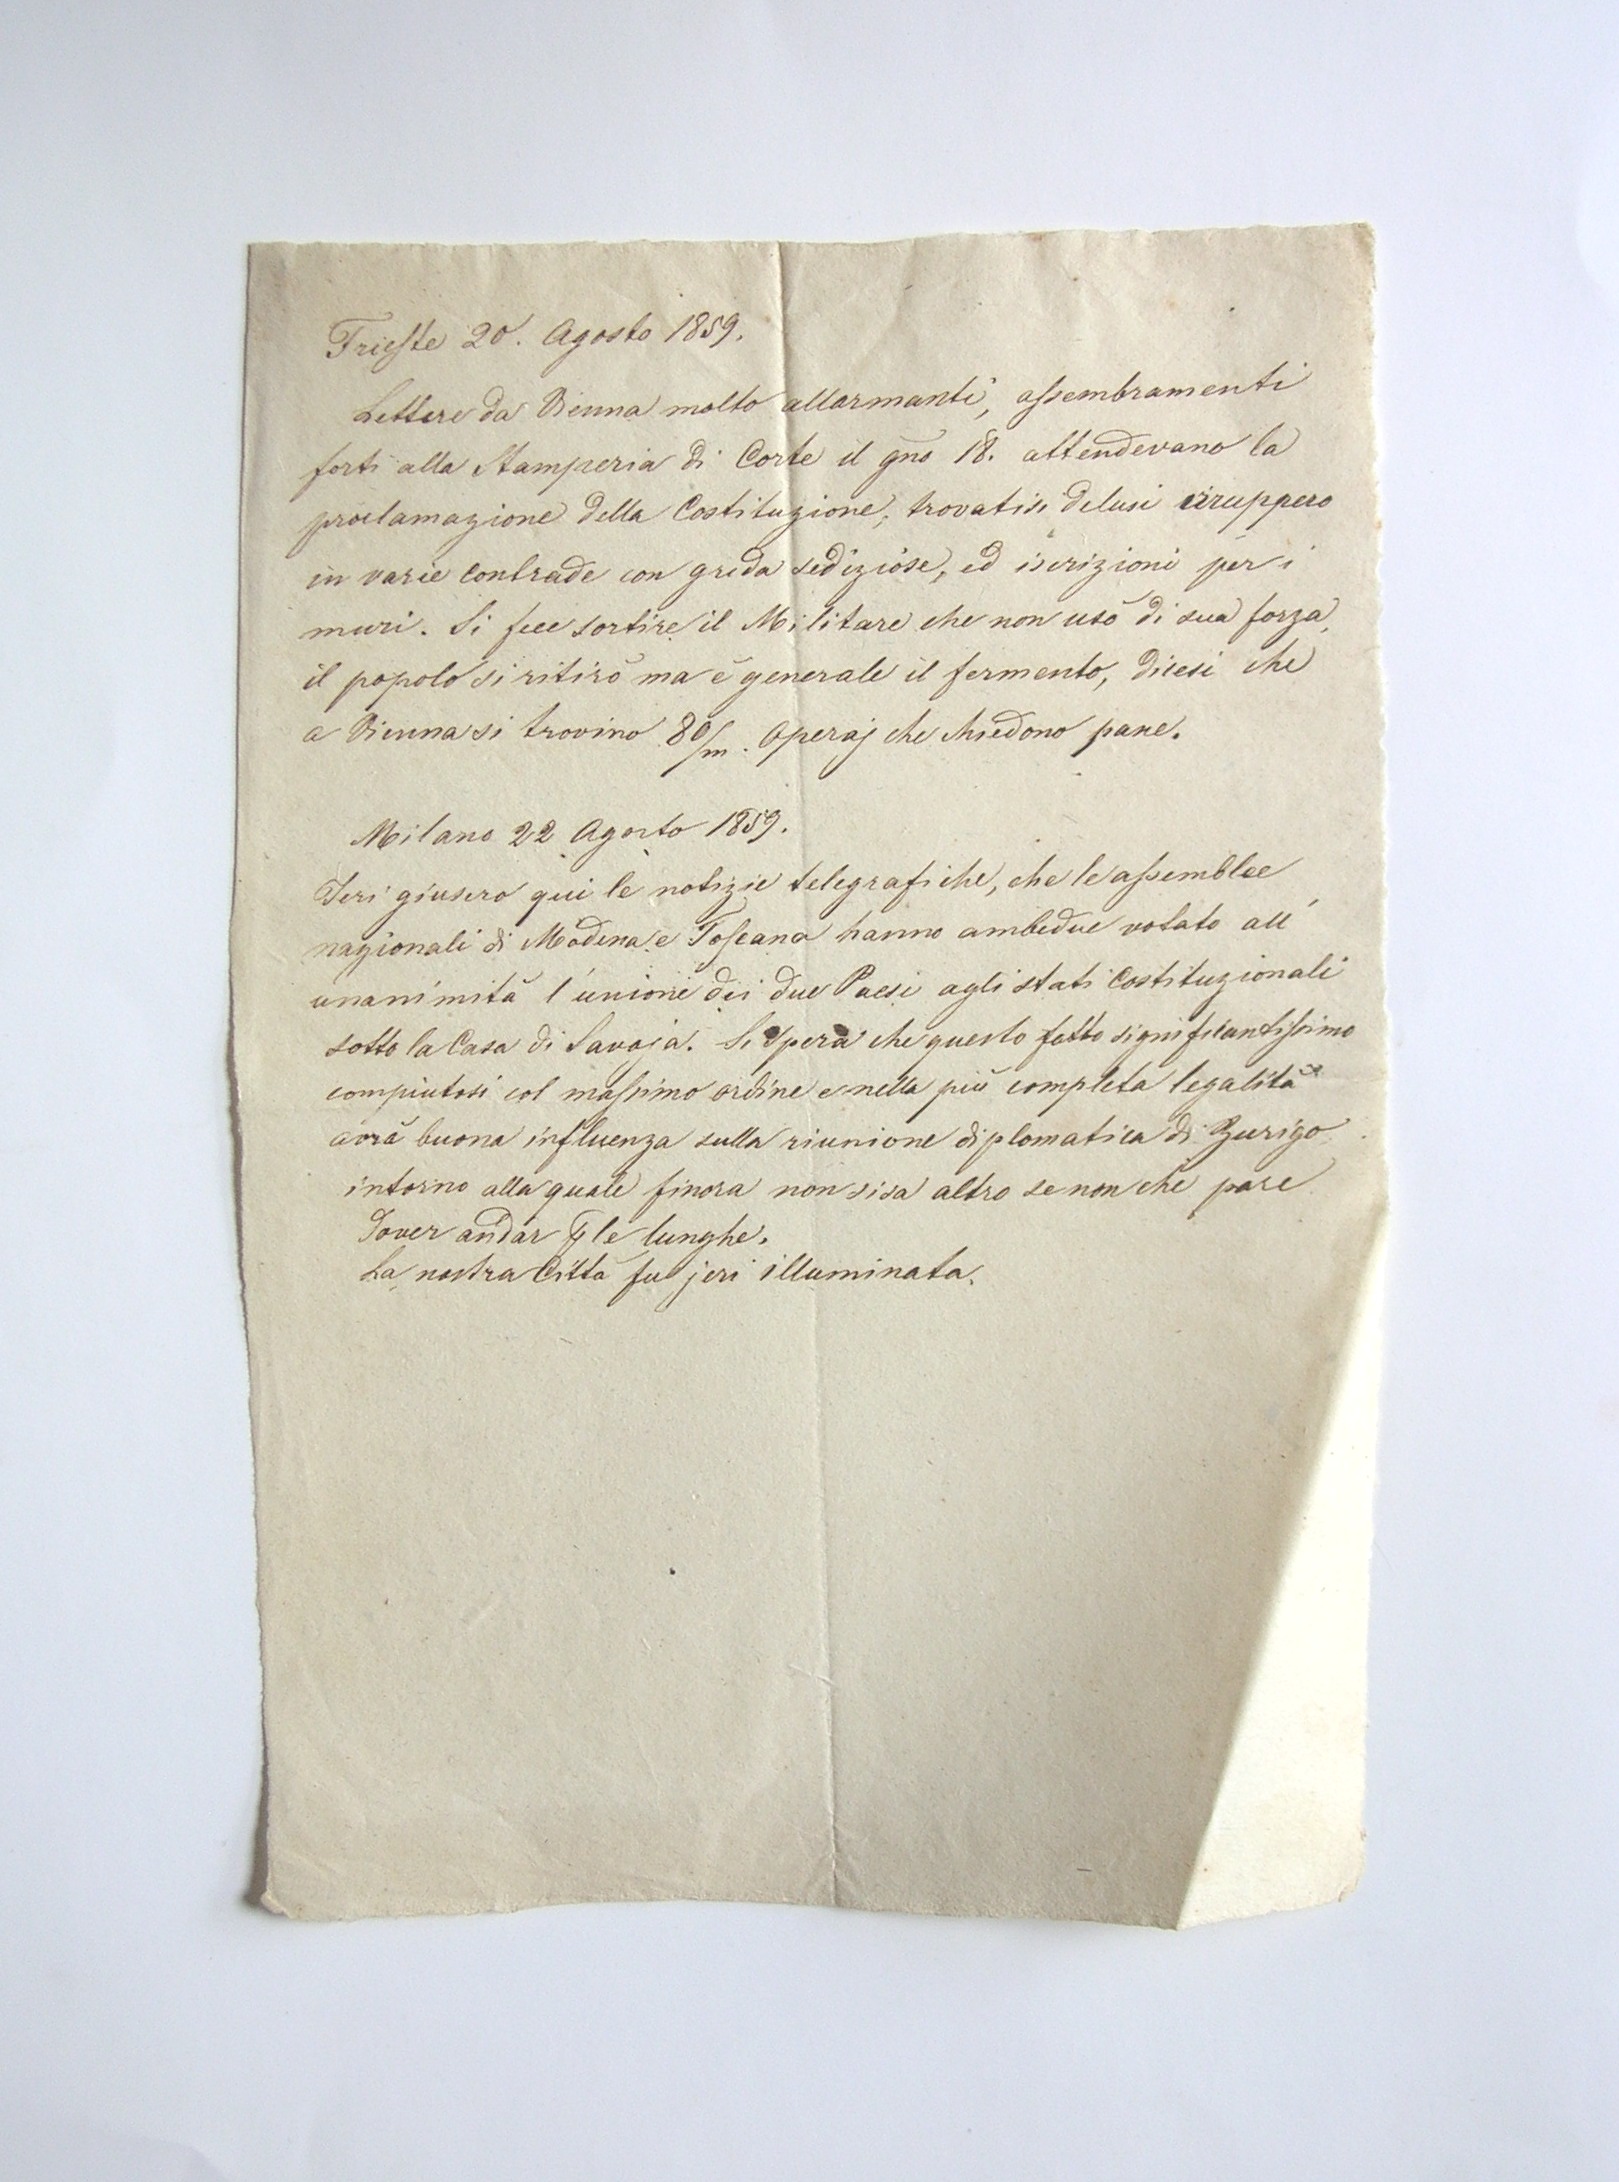 Trieste 20. Agosto 1859.
Lettere da Vienna molto allarmanti, assembramenti
forti alla Stamperia di Corte il gno 18. attendevano la
proclamazione della Costituzione, trovatisi delusi irruppero
in varie contrade con grida sediziose, ed iscrizioni per i
muri. Si fece sortire il Militare che non usò di sua forza,
il popolo si ritirò ma è generale il fermento, dicesi che
a Vienna si trovino 80/m. Operaj che chiedono pane.
Milano 22 Agosto 1859.
Jeri giusero qui le notizie telegrafiche, che le assemblee
nazionali di Modena e Toscana hanno ambedue votato all'
unanimità l'unione dei due Paesi agli stati Costituzionali
sotto la Casa di Savoja. Si spera che questo fatto significantissimo
compiutosi col massimo ordine e nella più completa legalità
avrà buona influenza sulla riunione diplomatica di Zurigo
intorno alla quale finora non si sa altro se non che pare
dover andar le lunghe.
La nostra Città fu jeri illuminata.